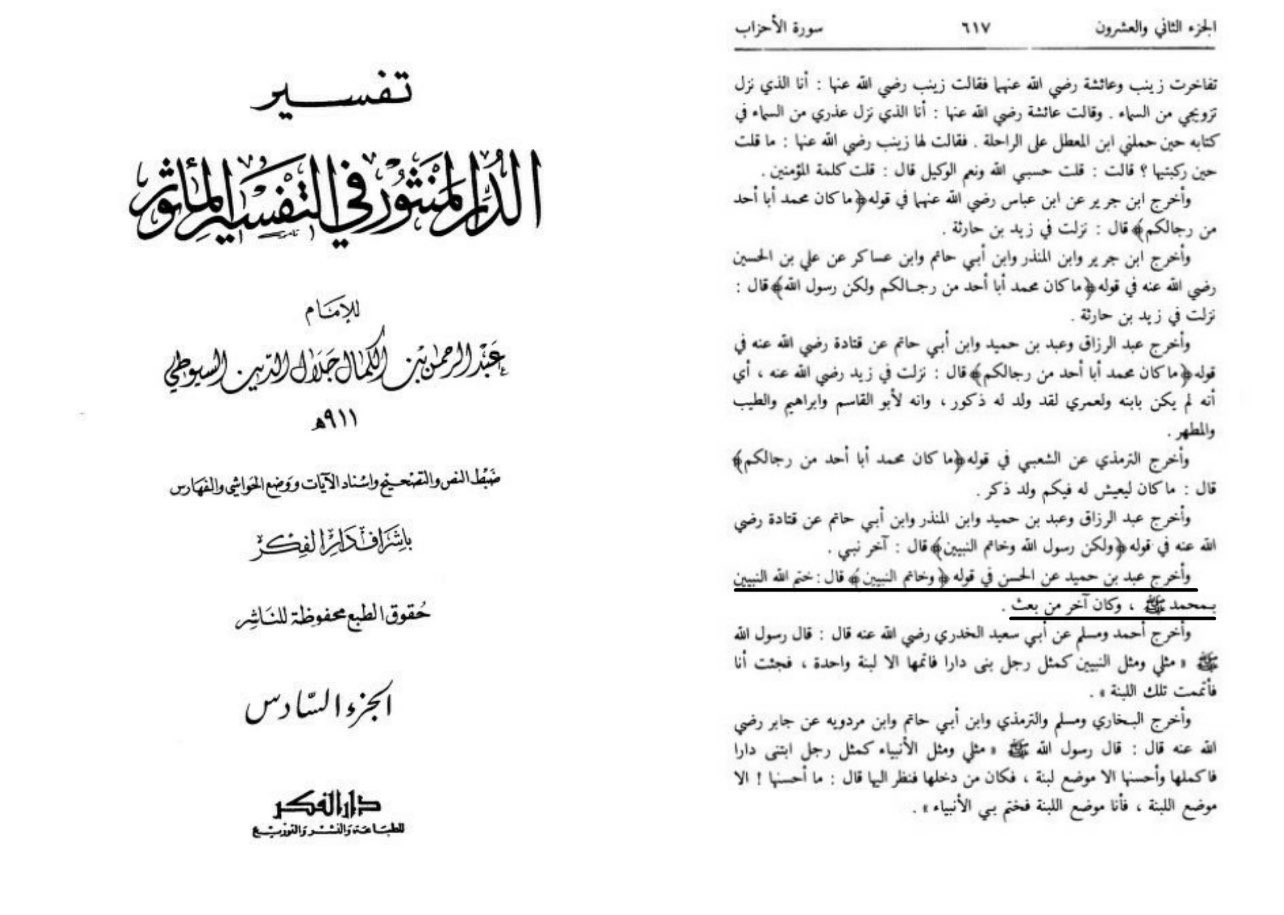 تفسير
الدر المنثور في التفسير المأثور
للإمام
عبد الرحمن بن الكمال جلال الدين السيوطي
٩١١هـ
ضبط النص والتصحيح واسناد الآيات ووضع الحواشي والفهارس
باشراف دار الفكر
حقوق الطبع محفوظة للناشر
الجزء السادس
دار الفكر
للطباعة والنشر والتوزيع
الجزء الثاني والعشرون ٦١٧ سورة الأحزاب
تفاخرت زينب وعائشة رضي الله عنهما فقالت زينب رضي الله عنها : أنا الذي نزل
تزويجي من السماء . وقالت عائشة رضي الله عنها : أنا الذي نزل عذري من السماء في
كتابه حين حملني ابن المعطل على الراحلة . فقالت لها زينب رضي الله عنها : ما قلت
حين ركبتيها ؟ قالت : قلت حسبي الله ونعم الوكيل قال : قلت كلمة المؤمنين .
وأخرج ابن جرير عن ابن عباس رضي الله عنهما في قوله ﴿ما كان محمد أبا أحد
من رجالكم﴾ قال : نزلت في زيد بن حارثة .
وأخرج ابن جرير وابن المنذر وابن أبي حاتم وابن عساكر عن علي بن الحسين
رضي الله عنه في قوله ﴿ما كان محمد أبا أحد من رجالكم ولكن رسول الله﴾ قال :
نزلت في زيد بن حارثة .
وأخرج عبد الرزاق وعبد بن حميد وابن أبي حاتم عن قتادة رضي الله عنه في
قوله ﴿ما كان محمد أبا أحد من رجالكم﴾ قال : نزلت في زيد رضي الله عنه ، أي
أنه لم يكن بابنه ولعمري لقد ولد له ذكور ، وانه لأبو القاسم وابراهيم والطيب
والمطهر .
وأخرج الترمذي عن الشعبي في قوله ﴿ما كان محمد أبا أحد من رجالكم﴾
قال : ما كان ليعيش له فيكم ولد ذكر .
وأخرج عبد الرزاق وعبد بن حميد وابن المنذر وابن أبي حاتم عن قتادة رضي
الله عنه في قوله ﴿ولكن رسول الله وخاتم النبيين﴾ قال : آخر نبي .
وأخرج عبد بن حميد عن الحسن في قوله ﴿وخاتم النبيين﴾ قال : ختم الله النبيين
بمحمد ﷺ ، وكان آخر من بعث .
وأخرج أحمد ومسلم عن أبي سعيد الخدري رضي الله عنه قال : قال رسول الله
ﷺ « مثلي ومثل النبيين كمثل رجل بنى دارا فاتمها الا لبنة واحدة ، فجئت أنا
فأتممت تلك اللبنة » .
وأخرج البخاري ومسلم والترمذي وابن أبي حاتم وابن مردويه عن جابر رضي
الله عنه قال : قال رسول الله ﷺ « مثلي ومثل الأنبياء كمثل رجل ابتنى دارا
فاكملها وأحسنها الا موضع لبنة ، فكان من دخلها فنظر اليها قال : ما أحسنها ! الا
موضع اللبنة ، فأنا موضع اللبنة فختم بي الأنبياء » .